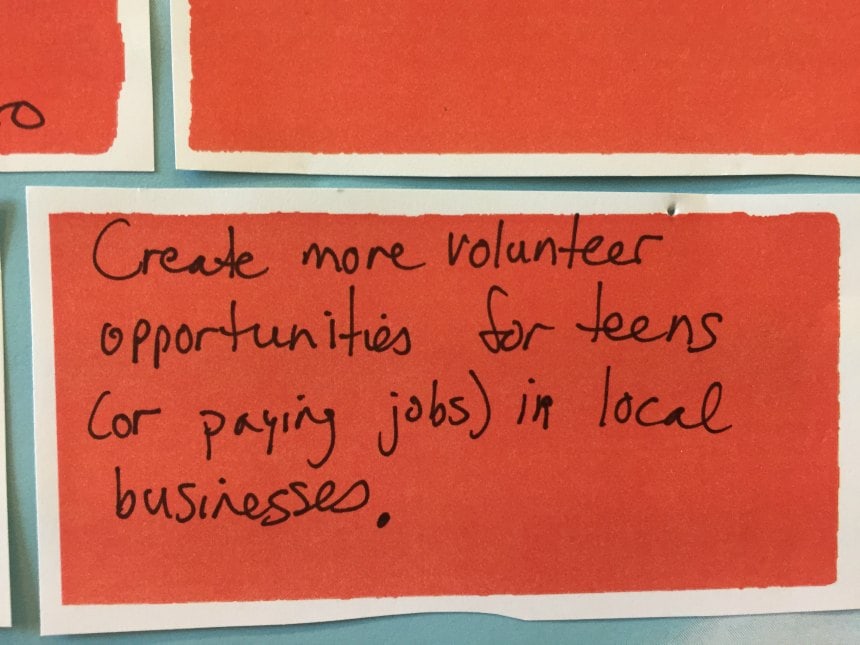 Create more volunteer
opportunities for teens
(or paying jobs) in local
businesses.